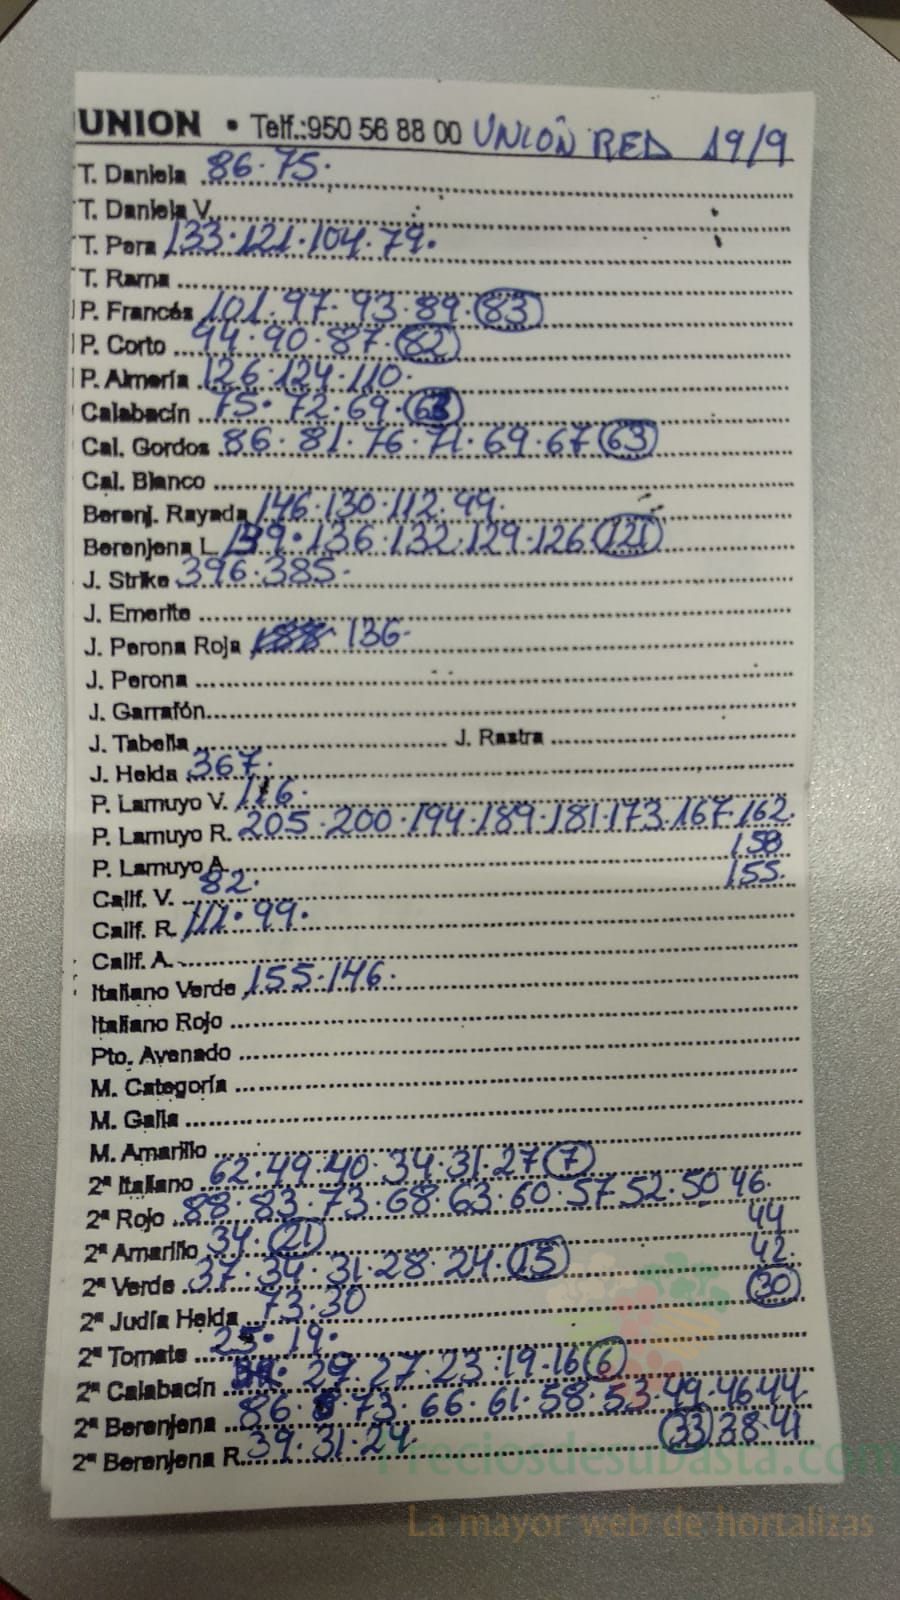 UNION • Telf.:950 56 88 00 UNIÓN RED 19/9
T. Daniela 86·75·
T. Daniela V.
T. Pera 133·121·104·79·
T. Rama
P. Francés 101·97·93·89·83
P. Corto 94·90·87·82
P. Almería 126·124·110·
Calabacín 75·72·69·
Cal. Gordos 86·81·76·71·69·67 63
Cal. Blanco
Berenj. Rayada 146·130·112·99·
Berenjena L 139·136·132·129·126 121
J. Strike 396·385·
J. Emerite
J. Perona Roja 136·
J. Perona
J. Garrafón
J. Tabella J. Rastra
J. Helda 367·
P. Lamuyo V. 116·
P. Lamuyo R. 205·200·194·189·181·173·167·162·
158
P. Lamuyo A.
155·
Calif. V. 82·
Calif. R. 111·99·
Calif. A.
Italiano Verde 155·146·
Italiano Rojo
Pto. Avenado
M. Categoría
M. Galia
M. Amarillo
2ª Italiano 62·49·40·34·31·27 7
2ª Rojo 88·83·73·68·63·60·57 52·50 46·
44
2ª Amarillo 34·21
42·
2ª Verde 37·34·31·28·24·15
30
2ª Judía Helda 73·30
2ª Tomate 25·19·
2ª Calabacín 29·27·23·19·16 6
2ª Berenjena 86·73·66·61·58·53·49·46·44·
33 38·41
2ª Berenjena R. 39·31·24·
Preciosdesubasta.com
La mayor web de hortalizas